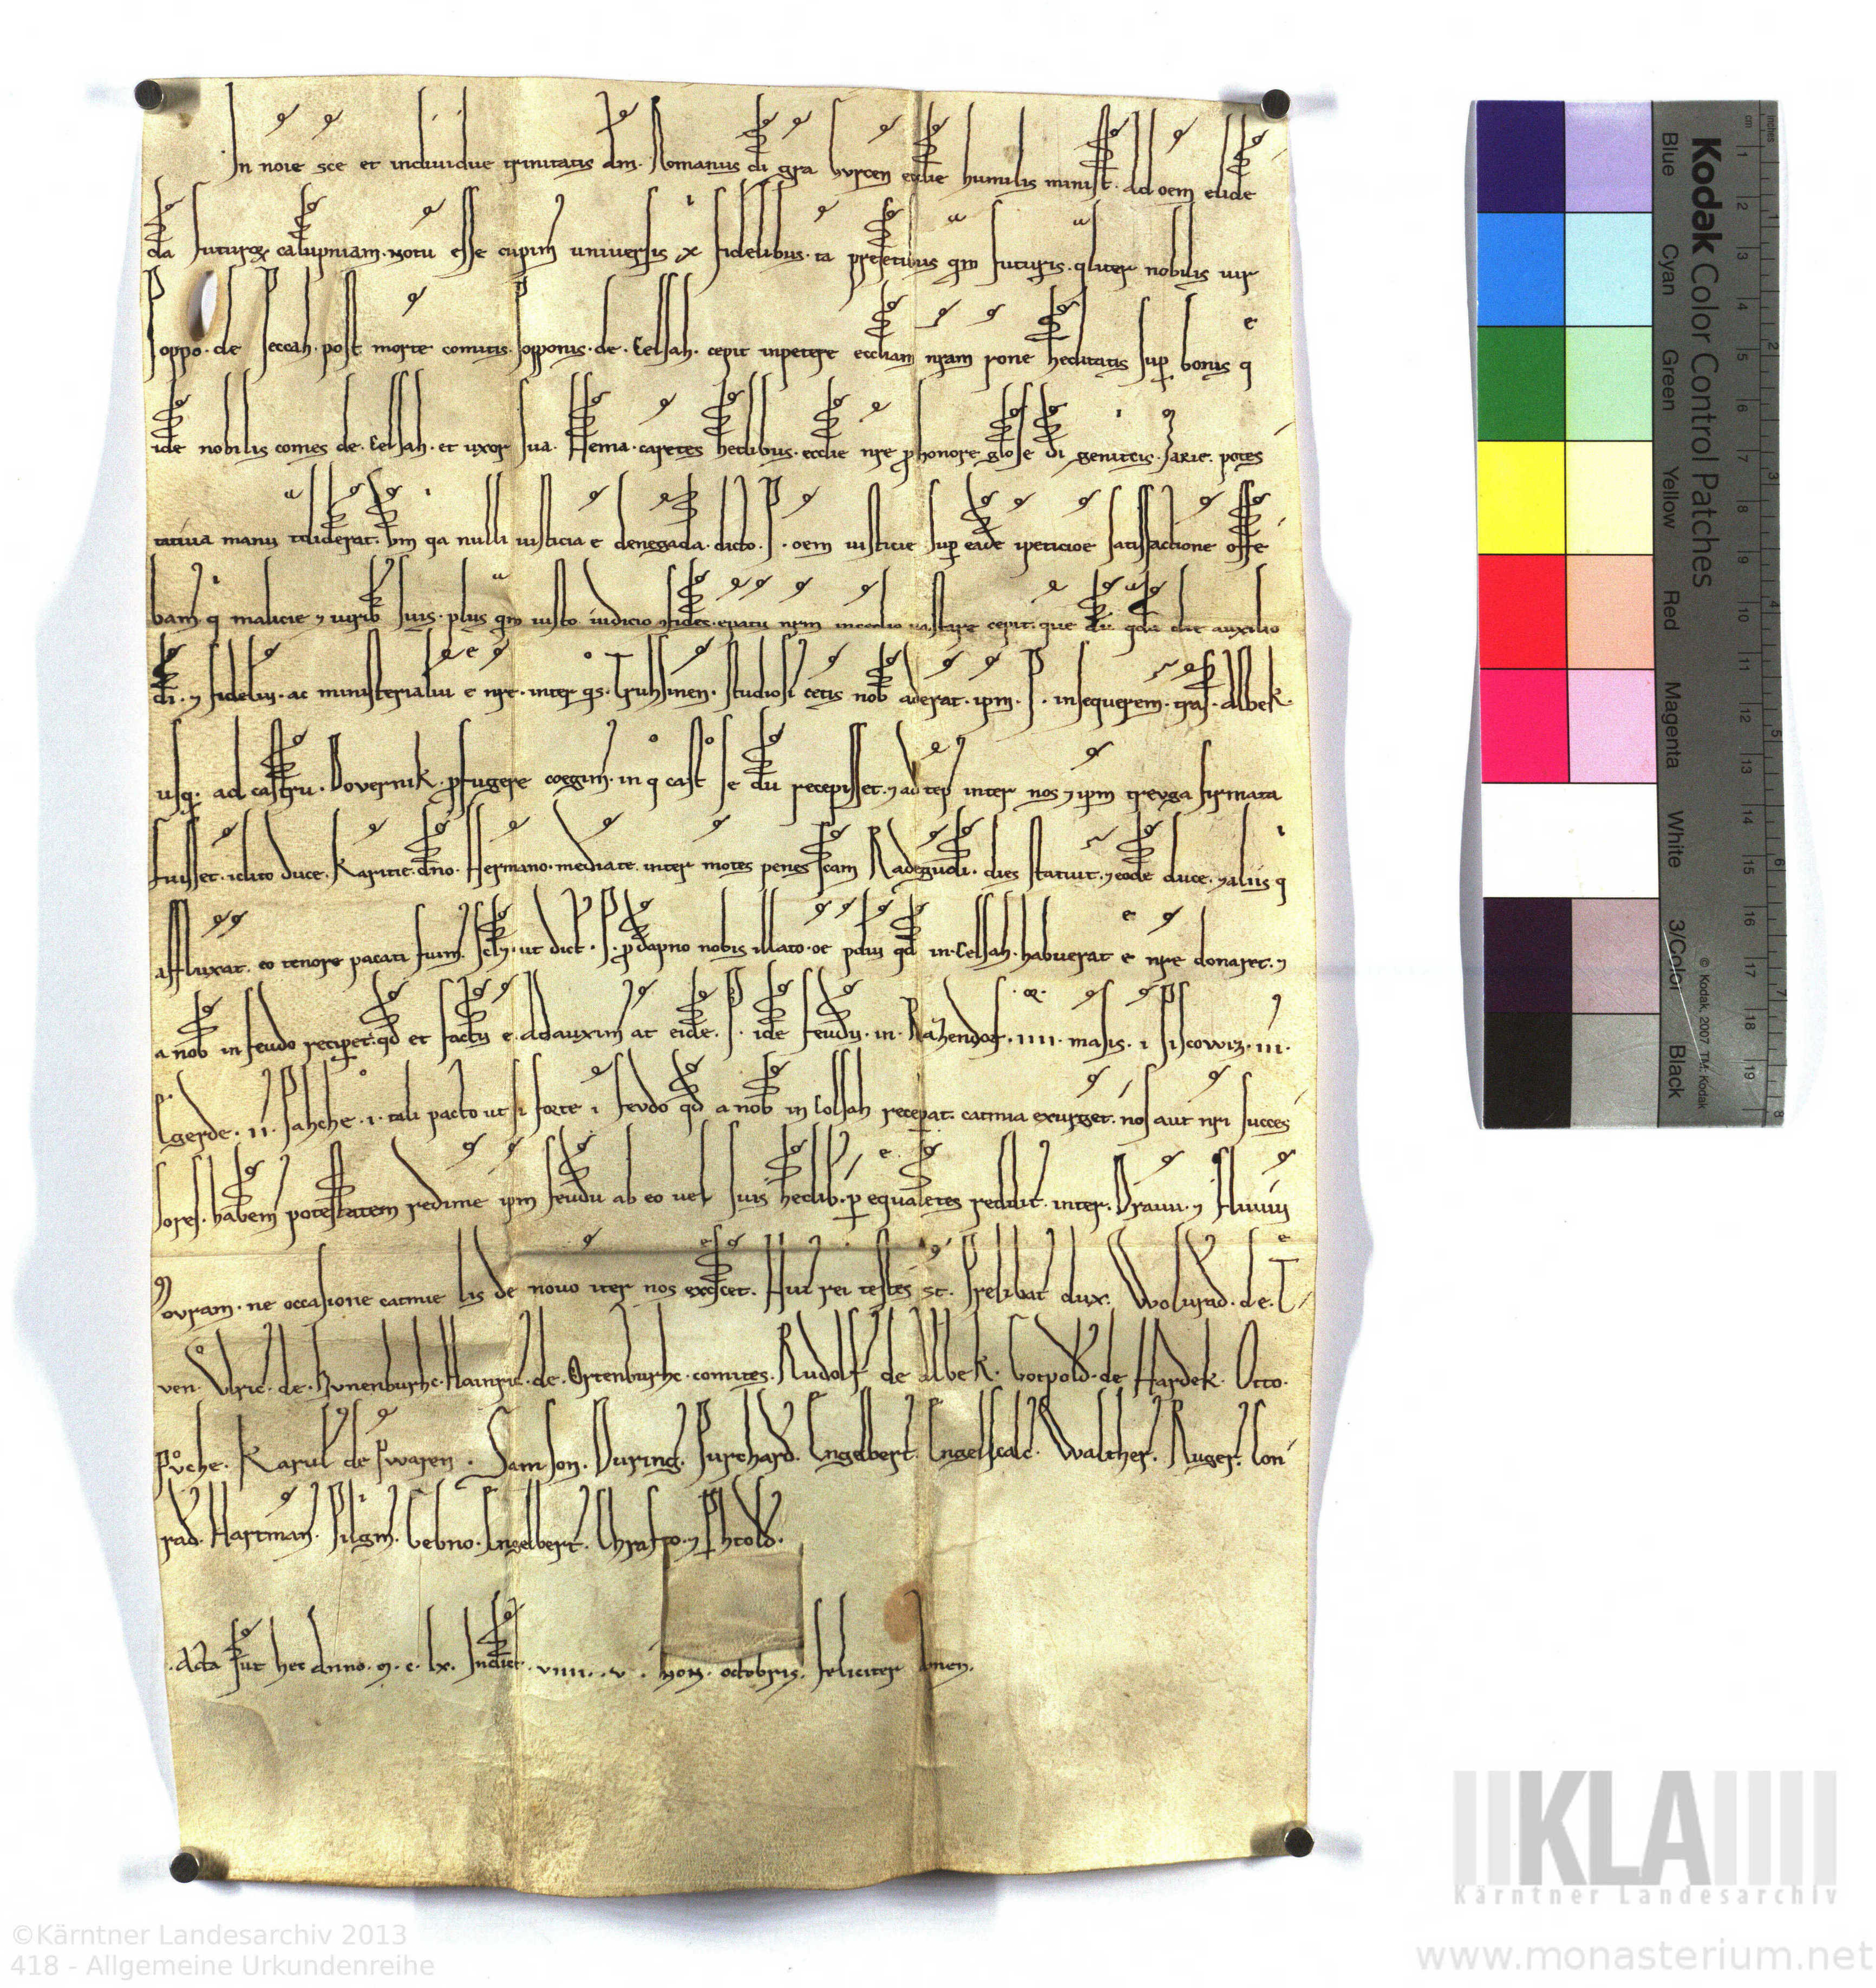 In noie sce et individue trinitatis am. Romanus di gra Gurcen ecclie humilis minist. ad oem elide
da futurox calupniam. notu esse cupim universis x fidelibus. ta presetibus qm futuris. qliter nobilis uir
Poppo. de Peccah. post morte comitis. Popponis. de. Celsah. cepit inpetere eccliam nram rone heditatis sup bonis q
ide nobilis comes de. Celsah. et uxor sua. Hema. caretes hedibus. ecclie nre p honore glose di genitcis. Marie. potes
tatiua manu tdiderat. Vm qa nulli iusticia e denegada. dicto. P. oem iusticie sup eade ipeticioe satisfactione offe
bam. q malicie & uirib suis. plus qm iusto iudicio fides. epatu nrm incedio uastare cepit. que du auxilio
di. & fideliu. ac ministerialiu e nre. inter qs. Truhsinen. studiosi cetis nob aderat. ipm. P. insequerem. tras. Albek.
usq. ad castru. Dovernik. pfugere coegim. in q cast se du recepisset. & ad tep inter nos & ipm treuga firmata
fuisset. iclito duce. Karitie. dno. Hermano. mediate. inter motes penes scam Radegudi. dies statuit. & eode duce. & aliis q
affluxat. eo tenore pacati fuim. ut dict. P. p dapno nobis illato. oe pdiu qd in. Celsah. habuerat e nre donaret. &
a nob in feudo reciperet. qd et factu e. adauxim at eide. P. ide feudu. in. Razendorf. IIII. masis. i Piscowiz. III.
Egerde. II. Pahche. I. tali pacto ut si forte i feudo qd a nob in Celsah recepat. catinia exurget. nos aut nri succes
sores. habem potestatem redime ipm feudu ab eo uel suis hedib. p equaletes reddit. inter. Drauu. & fluuiu
Mouram. ne occasione catinie lis de nouo iter nos excscet. Hui rei testes st. Prelibat dux. Wolurad. de. T
ven. Vlric. de. Hunenburhc. Hainric. de. Ortenburhc. comites. Rudolf de Albek. Gotpold. de Hardek. Otto.
Puche. Karul de Pwaren. Samson. During. Purchard. Engelbert. Engelscalc. Walther. Ruger. Con
rad. Hartman. Pilgm. Gebno. Engelbert. Chrafto. & Phtold.
Acta sut hec Anno. M. C. LX. Indict. VIIII. V. Non. octobris. feliciter Amen.
Kodak Color Control Patches
Blue Cyan Green Yellow Red Magenta White 3/Color Black
© Kodak, 2007 TM: Kodak
KLA
Kärntner Landesarchiv
©Kärntner Landesarchiv 2013
418 - Allgemeine Urkundenreihe
www.monasterium.net